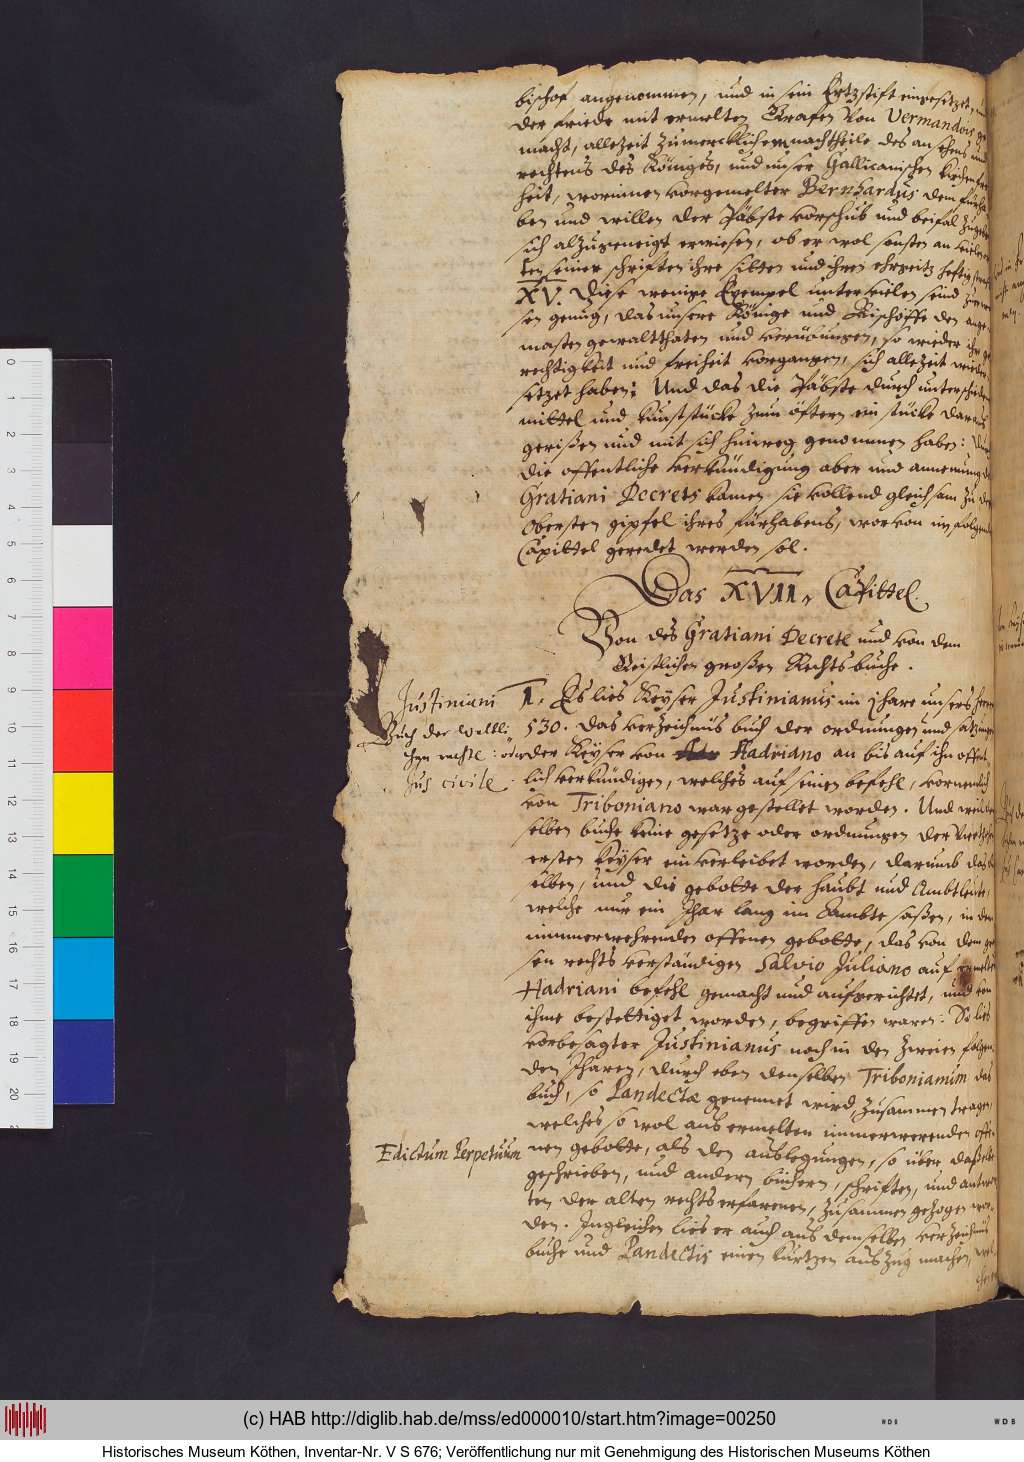 bischof angenommen, und in sein Ertzstift eingesetzet,
der friede mit ermelten Grafen von Vermandois
macht, allezeit zu mercklichem nachtheile des ansehens und
rechtens des Königes, und unser Gallicanischen kirchen
heit, worinnen vorgemelter Bernhardus dem fürha
ben und willen der Päbste vorschub und beifal zugeben
sich alzugeneigt erwiesen, ob er wol sonsten an vielen or
ten seiner schriften ihre sitten und ihren ehrgeitz heftig
XV. Diese wenige Exempel unter vielen seind
sen genug, das unsere Könige und Bischöffe den ange
masten gewaltthaten und verübungen, so wieder ihr ge
rechtigkeit und freiheit vorgangen, sich allezeit wieder
setzet haben: Und das die Päbste durch unterschiedene
mittel und kunststücke zum öftern ein stücke daraus
gerißen und mit sich hinweg genommen haben:
die offentliche verkündigung aber und annemung des
Gratiani Decrets kamen sie vollend gleichsam zu dem
Obersten gipfel ihres fürhabens, worvon im folgenden
Capittel geredet werden sol.
Das XVII. Capittel.
Von des Gratiani Decrete und von dem
Geistlichen großen Rechtsbuche.
Justiniani
Buch der Weltli:
chen rechte: oder
Jus civile.
1. Es lies Keyser Justinianus im Jhare unsers Herrn
530. das verzeichnüs buch der ordnungen und satzungen
der Keyser von Hadriano an bis auf ihn offent
lich verkündigen, welches auf seinen befehl, vornemlich
von Triboniano war gestellet worden. Und weil in
selben buche keine gesetze oder ordnungen der
ersten Keyser einverleibet worden, darumb das
elben, und die gebotte der haubt und Ambtleute,
welche nur ein Jhar lang im Ambte saßen, in dem
immerwehrenden offenen gebotte, das von dem
sen rechts verständigen Salvio Juliano auf ermelten
Hadriani befehl gemacht und aufgerichtet, und von
ihme bestettiget worden, begriffen waren: So lies
vorbesagter Justinianus noch in den zweien folgen
den Jharen, durch eben denselben Tribonianum das
buch, so Pandectæ genennet wird, zusammen tragen,
welches so wol aus ermelten immerwerenden offe
Edictum Perpetuum
nen gebotte, als den auslegungen, so über daßelbe
geschrieben, und andern büchern, schriften, und antwor
ten der alten rechtserfarenen, zusammen gezogen wor
den. Ingleichen lies er auch aus demselben verzeichnüs
buche und Pandectis einen kurtzen auszug machen, wel
chen
(c) HAB http://diglib.hab.de/mss/ed000010/start.htm?image=00250
Historisches Museum Köthen, Inventar-Nr. V S 676; Veröffentlichung nur mit Genehmigung des Historischen Museums Köthen